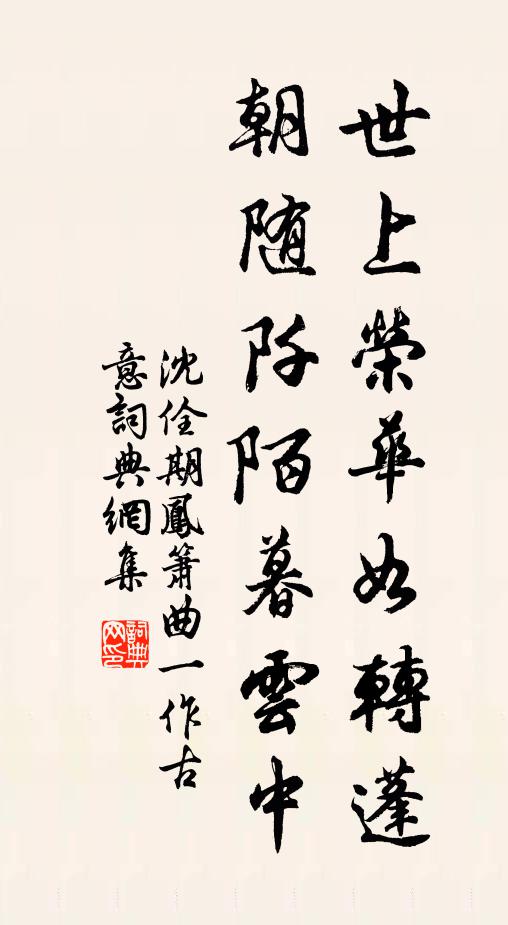 世上榮華如轉蓬
朝随阡陌暮雲中
沈佺期鳳簫曲一作古
意詞典網集
詞典网印